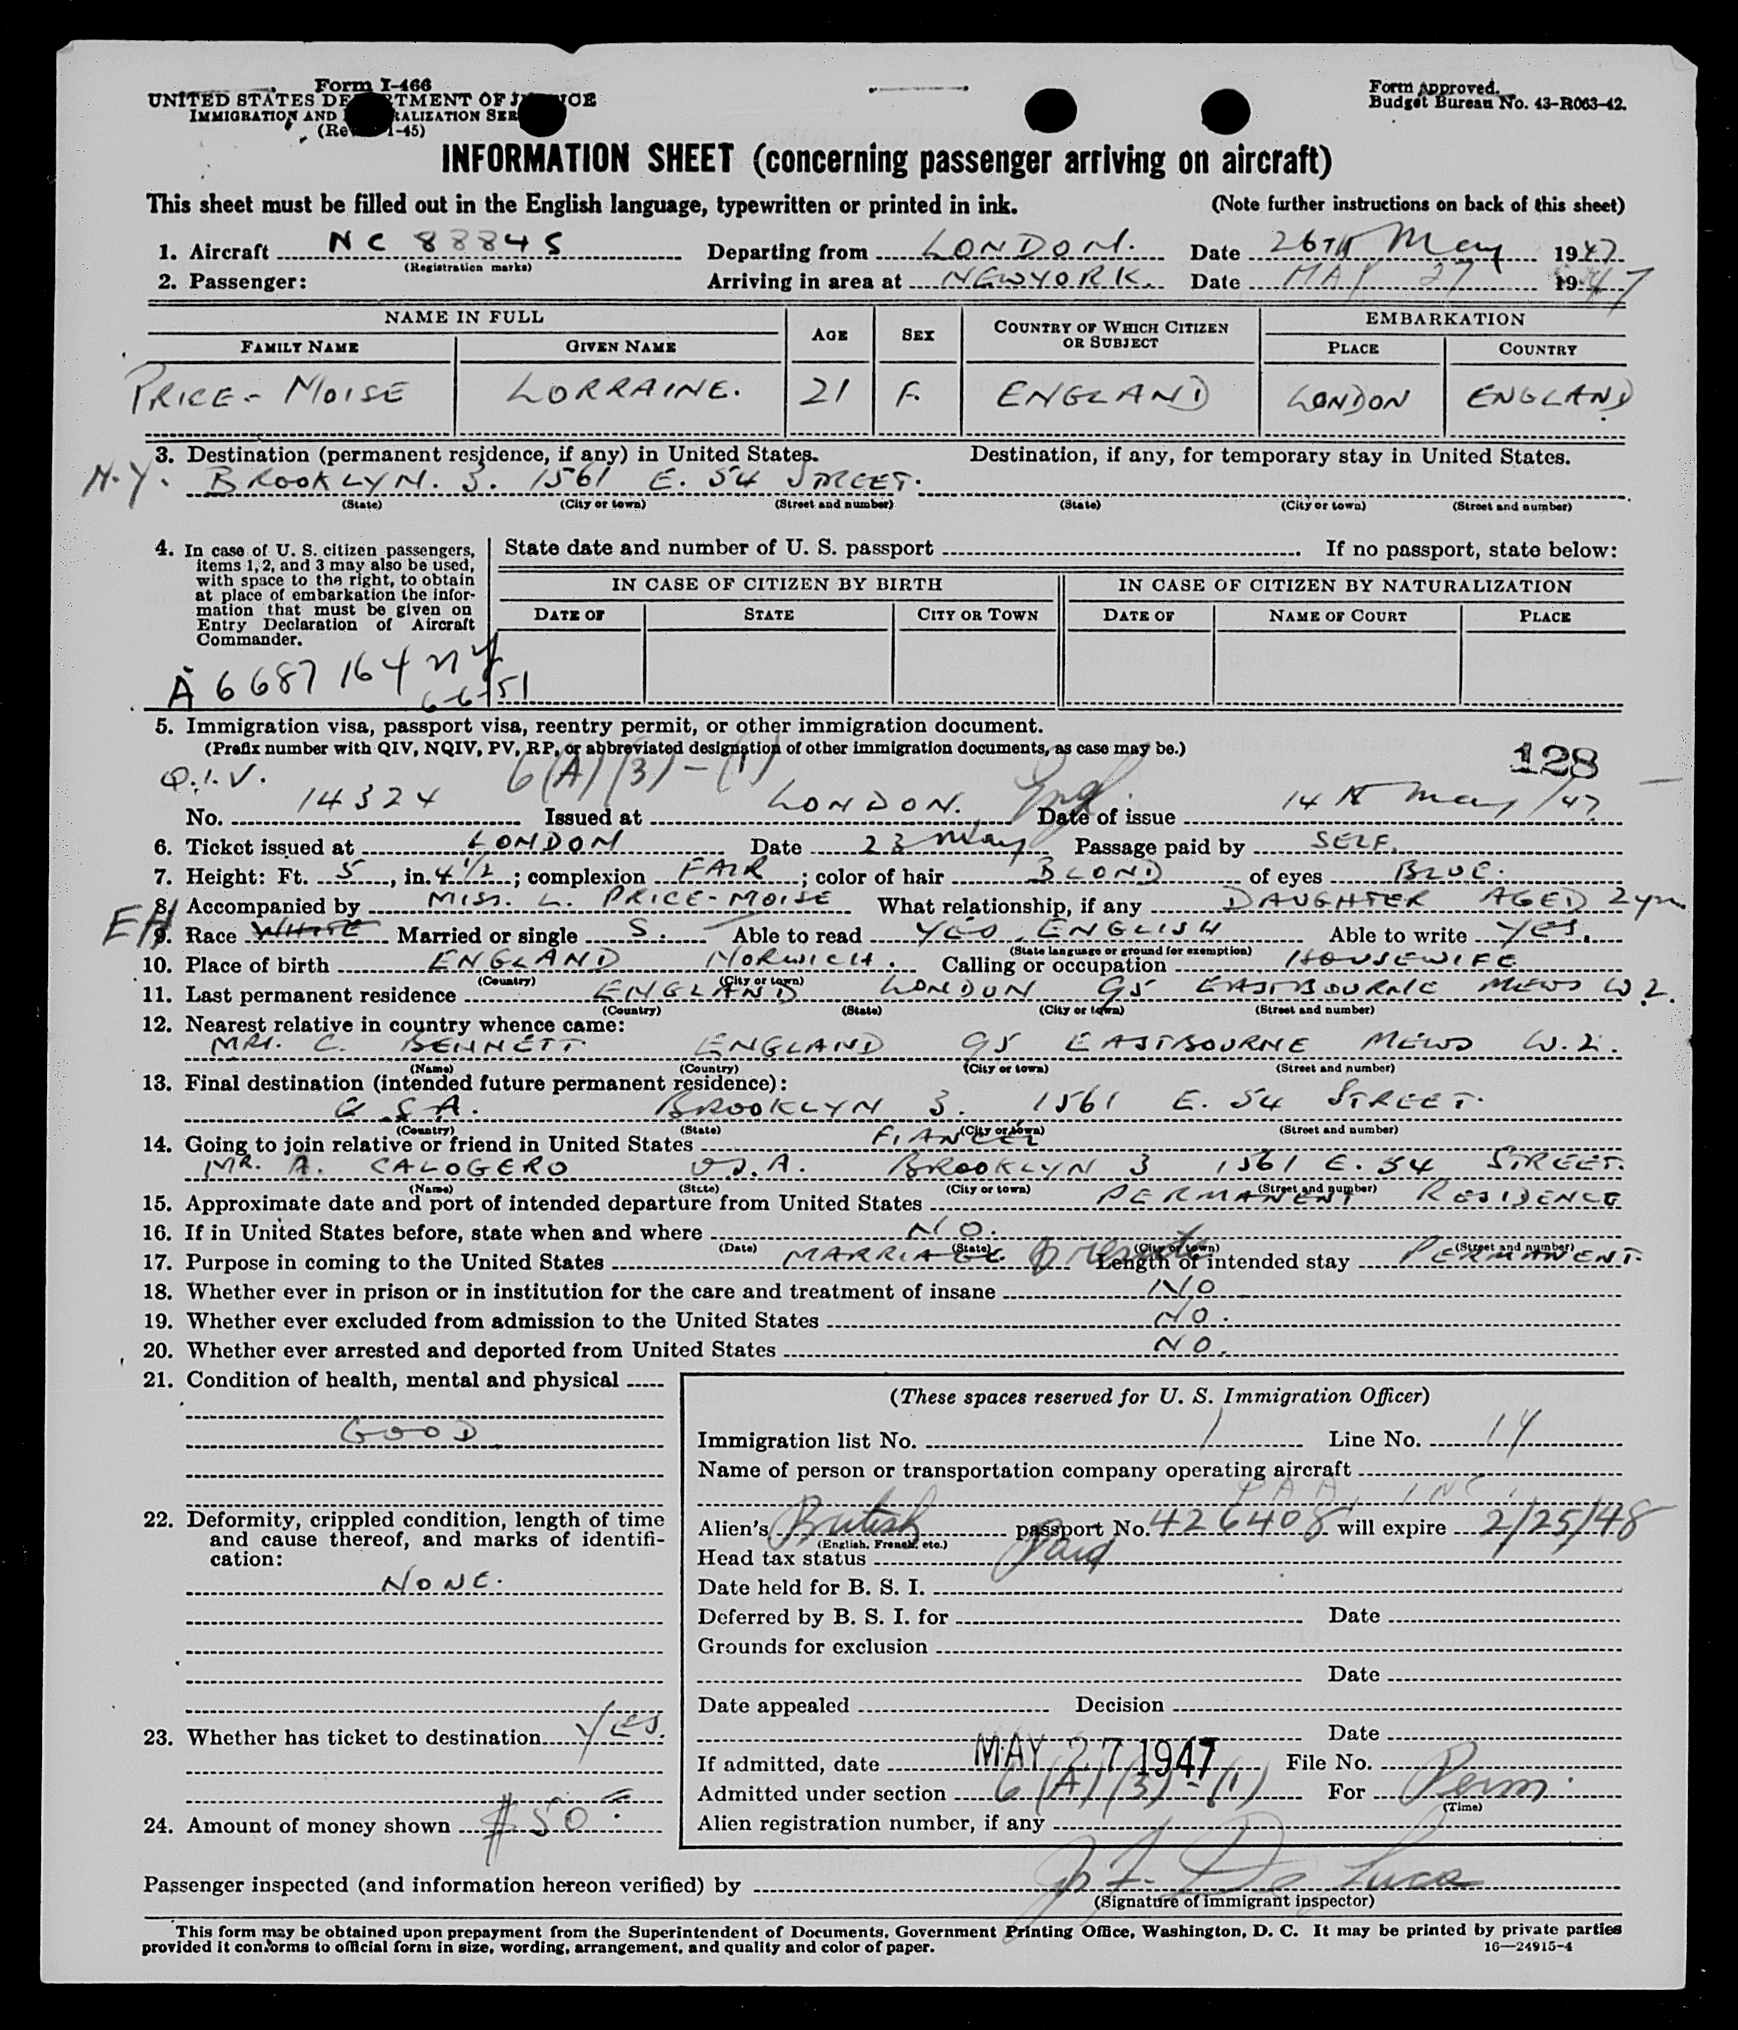 Form I-466
UNITED STATES DE TMENT OF J CE
IMMIGRATION AND RALIZATION SER
(Re 1-45)
Form approved.
Budget Bureau No. 43-R063-42.
INFORMATION SHEET (concerning passenger arriving on aircraft)
This sheet must be filled out in the English language, typewritten or printed in ink. (Note further instructions on back of this sheet)
1. Aircraft NC 88845 Departing from LONDON. Date 26TH May 1947
(Registration marks)
2. Passenger: Arriving in area at NEWYORK. Date MAY 27 1947
NAME IN FULL AGE SEX COUNTRY OF WHICH CITIZEN OR SUBJECT EMBARKATION
FAMILY NAME GIVEN NAME PLACE COUNTRY
PRICE-MOISE LORRAINE. 21 F. ENGLAND LONDON ENGLAND
3. Destination (permanent residence, if any) in United States. Destination, if any, for temporary stay in United States.
N.Y. BROOKLYN. 3. 1561 E. 54 STREET.
(State) (City or town) (Street and number) (State) (City or town) (Street and number)
4. In case of U. S. citizen passengers, items 1, 2, and 3 may also be used, with space to the right, to obtain at place of embarkation the information that must be given on Entry Declaration of Aircraft Commander.
State date and number of U. S. passport . If no passport, state below:
IN CASE OF CITIZEN BY BIRTH IN CASE OF CITIZEN BY NATURALIZATION
DATE OF STATE CITY OR TOWN DATE OF NAME OF COURT PLACE
A 6687164 ny
6-6-51
5. Immigration visa, passport visa, reentry permit, or other immigration document.
(Prefix number with QIV, NQIV, PV, RP, or abbreviated designation of other immigration documents, as case may be.)
128
Q.I.V. 6(A)(3)-(1)
No. 14324 Issued at LONDON. Engl. Date of issue 14th May/47
6. Ticket issued at LONDON Date 23 May Passage paid by SELF.
7. Height: Ft. 5, in. 4 1/2; complexion FAIR; color of hair BLOND of eyes BLUE.
8. Accompanied by MISS. L. PRICE-MOISE What relationship, if any DAUGHTER AGED 2 yrs
EH
9. Race WHITE Married or single S. Able to read YES, ENGLISH Able to write YES.
(State language or ground for exemption)
10. Place of birth ENGLAND NORWICH. Calling or occupation HOUSEWIFE
(Country) (City or town)
11. Last permanent residence ENGLAND LONDON 95 EASTBOURNE MEWS W.2.
(Country) (State) (City or town) (Street and number)
12. Nearest relative in country whence came:
MRS. C. BENNETT ENGLAND 95 EASTBOURNE MEWS W.2.
(Name) (Country) (City or town) (Street and number)
13. Final destination (intended future permanent residence):
U S A. BROOKLYN 3. 1561 E. 54 STREET.
(Country) (State) (City or town) (Street and number)
14. Going to join relative or friend in United States FIANCEE
MR. A. CALOGERO U.S.A. BROOKLYN 3 1561 E. 54 STREET.
(Name) (State) (City or town) (Street and number)
15. Approximate date and port of intended departure from United States PERMANENT RESIDENCE
16. If in United States before, state when and where NO.
(Date) (State) (City or town) (Street and number)
17. Purpose in coming to the United States MARRIAGE. Length of intended stay PERMANENT.
18. Whether ever in prison or in institution for the care and treatment of insane NO
19. Whether ever excluded from admission to the United States NO.
20. Whether ever arrested and deported from United States NO.
21. Condition of health, mental and physical
GOOD
22. Deformity, crippled condition, length of time and cause thereof, and marks of identification:
NONE.
23. Whether has ticket to destination YES.
24. Amount of money shown $50
(These spaces reserved for U. S. Immigration Officer)
Immigration list No. 1 Line No. 14
Name of person or transportation company operating aircraft
PAA, INC.
Alien's British passport No. 426408 will expire 2/25/48
(English, French, etc.)
Head tax status Paid
Date held for B. S. I.
Deferred by B. S. I. for Date
Grounds for exclusion
Date
Date appealed Decision
Date
If admitted, date MAY 27 1947 File No.
Admitted under section 6(A)(3)-(1) For Perm.
(Time)
Alien registration number, if any
Passenger inspected (and information hereon verified) by J. F. De Luca
(Signature of immigrant inspector)
This form may be obtained upon prepayment from the Superintendent of Documents, Government Printing Office, Washington, D. C. It may be printed by private parties
provided it conforms to official form in size, wording, arrangement, and quality and color of paper. 16—24915-4